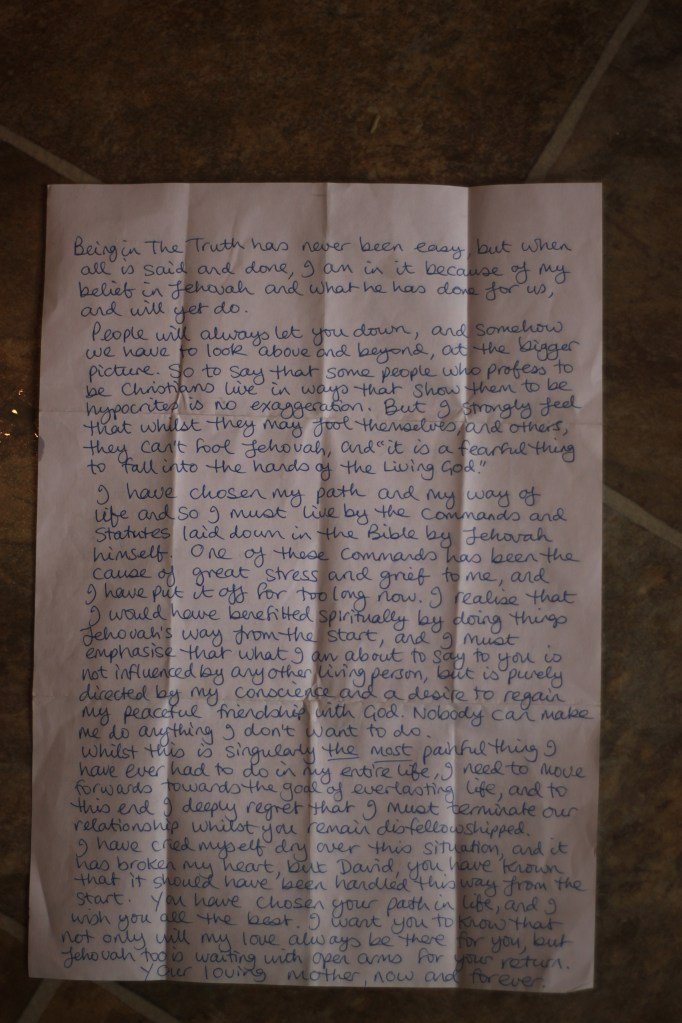 Being in The Truth has never been easy, but when
all is said and done, I am in it because of my
belief in Jehovah and what he has done for us,
and will yet do.
People will always let you down, and somehow
we have to look above and beyond, at the bigger
picture. So to say that some people who profess to
be Christians live in ways that show them to be
hypocrites is no exaggeration. But I strongly feel
that whilst they may fool themselves, and others,
they can't fool Jehovah, and "it is a fearful thing
to fall into the hands of the Living God."
I have chosen my path and my way of
life and so I must live by the commands and
statutes laid down in the Bible by Jehovah
himself. One of these commands has been the
cause of great stress and grief to me, and
I have put it off for too long now. I realise that
I would have benefitted spiritually by doing things
Jehovah's way from the start, and I must
emphasise that what I am about to say to you is
not influenced by any other living person, but is purely
directed by my conscience and a desire to regain
my peaceful friendship with God. Nobody can make
me do anything I don't want to do.
Whilst this is singularly the most painful thing I
have ever had to do in my entire life, I need to move
forwards towards the goal of everlasting life, and to
this end I deeply regret that I must terminate our
relationship whilst you remain disfellowshipped.
I have cried myself dry over this situation, and it
has broken my heart, but David, you have known
that it should have been handled this way from the
start. You have chosen your path in life, and I
wish you all the best. I want you to know that
not only will my love always be there for you, but
Jehovah too is waiting with open arms for your return.
Your loving mother, now and forever.